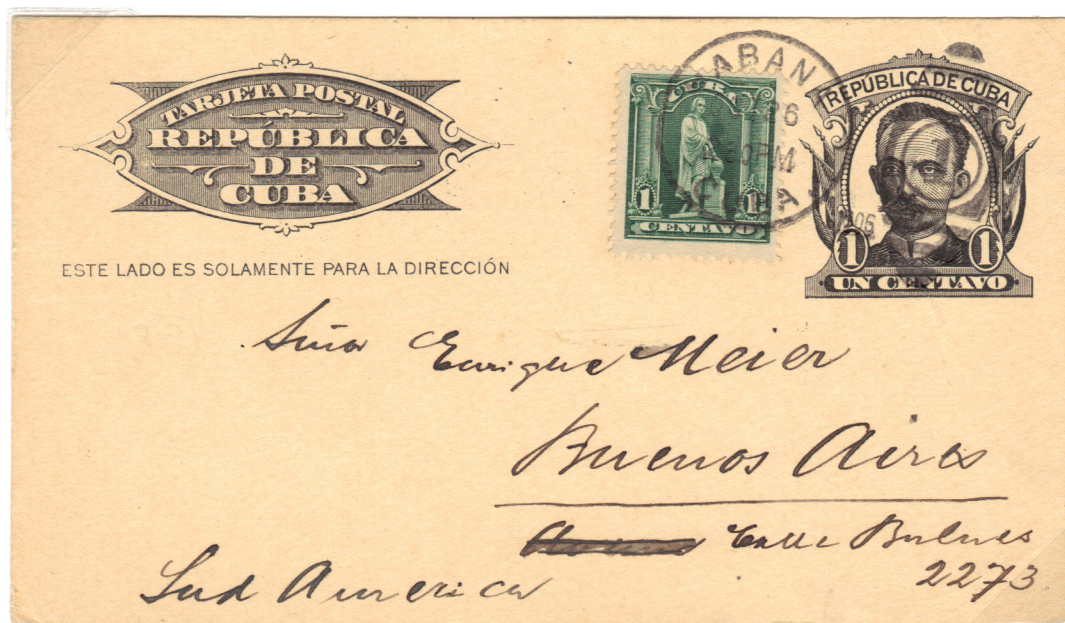 TARJETA POSTAL
REPÚBLICA
DE
CUBA
ESTE LADO ES SOLAMENTE PARA LA DIRECCIÓN
CUBA
1 1
CENTAVO
REPÚBLICA DE CUBA
1 1
UN CENTAVO
Señor Enrique Meier
Buenos Aires
Calle Bulnes
2273
Sud America